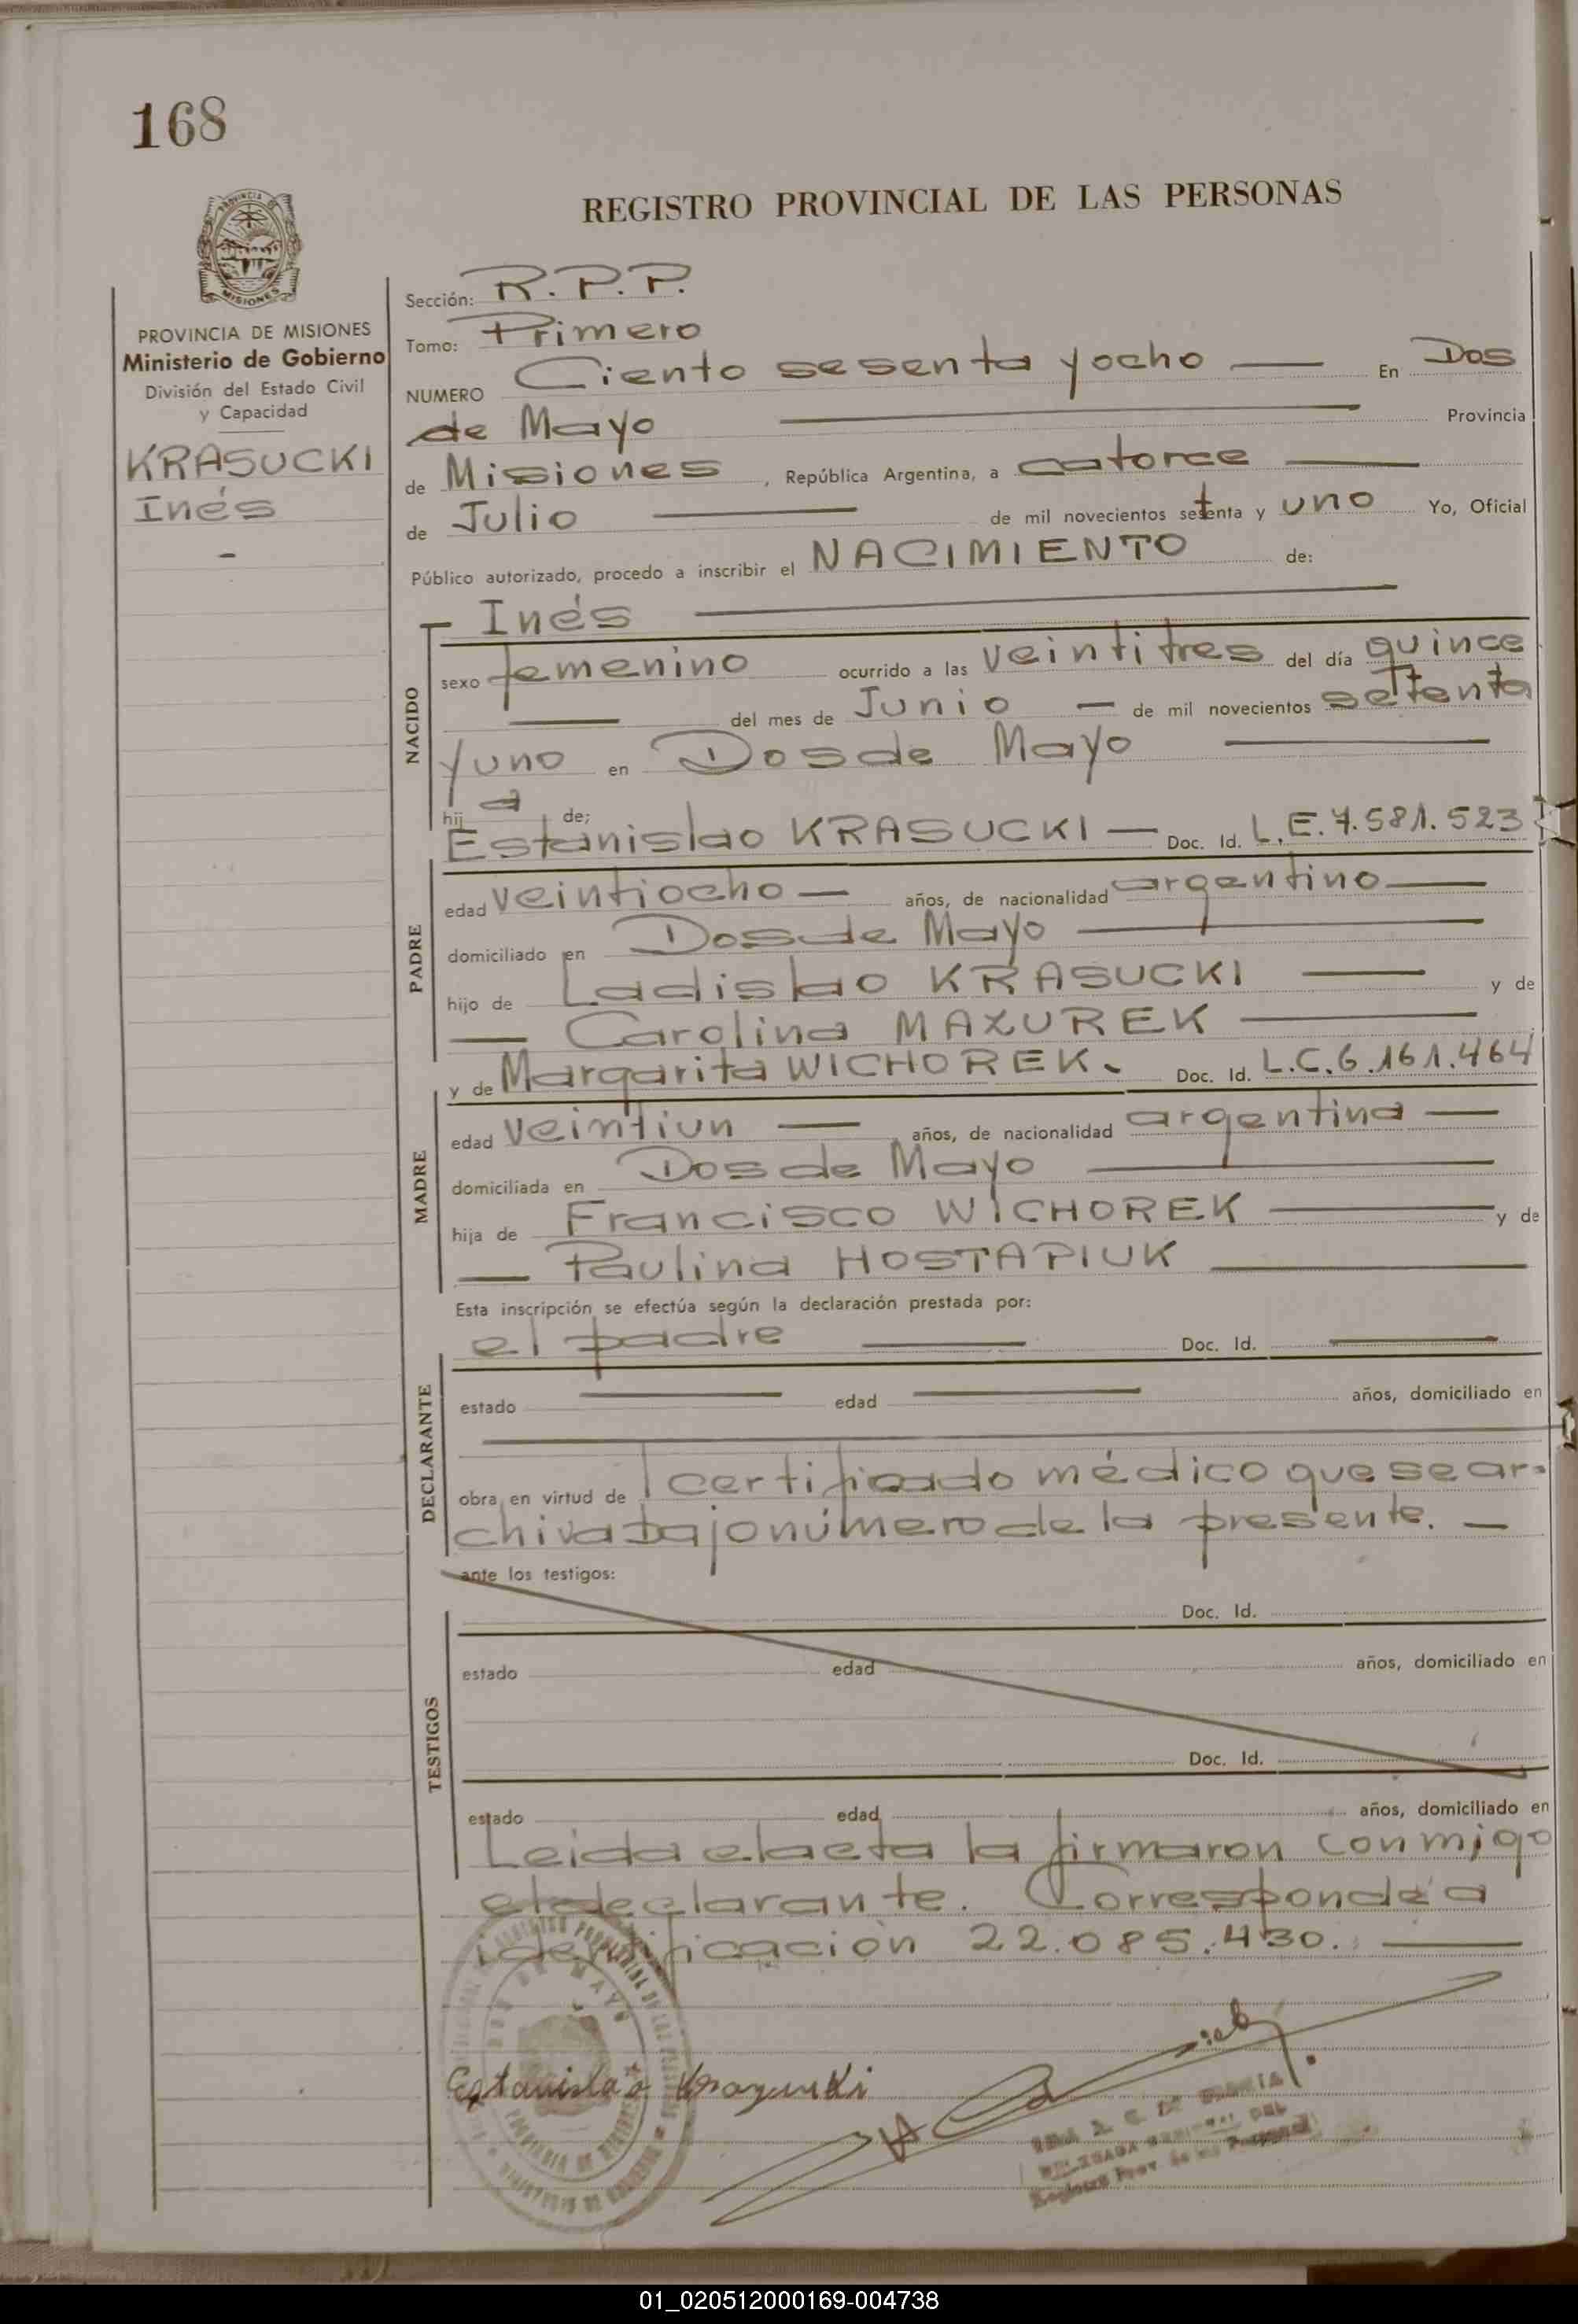 168
REGISTRO PROVINCIAL DE LAS PERSONAS
MISIONES
PROVINCIA DE MISIONES
Ministerio de Gobierno
División del Estado Civil
y Capacidad
KRASUCKI
Inés
Sección: R.P.P.
Tomo: Primero
NUMERO Ciento sesenta y ocho — En Dos
de Mayo — Provincia
de Misiones, República Argentina, a catorce —
de Julio — de mil novecientos setenta y uno Yo, Oficial
Público autorizado, procedo a inscribir el NACIMIENTO de:
Inés —
NACIDO
sexo femenino ocurrido a las veintitres del día quince
— del mes de Junio — de mil novecientos setenta
y uno en Dos de Mayo —
hij a de:
Estanislao KRASUCKI — Doc. Id. L.E.7.581.523
PADRE
edad veintiocho — años, de nacionalidad argentino —
domiciliado en Dos de Mayo —
hijo de Ladislao KRASUCKI — y de
— Carolina MAZUREK —
y de Margarita WICHOREK. Doc. Id. L.C.6.161.464
MADRE
edad veintiun — años, de nacionalidad argentina —
domiciliada en Dos de Mayo —
hija de Francisco WICHOREK — y de
— Paulina HOSTAPIUK —
Esta inscripción se efectúa según la declaración prestada por:
el padre — Doc. Id. —
DECLARANTE
estado — edad — años, domiciliado en
obra en virtud de certificado médico que se ar-
chiva bajo número de la presente. —
ante los testigos:
Doc. Id.
TESTIGOS
estado edad años, domiciliado en
Doc. Id.
estado edad años, domiciliado en
Leida el acta la firmaron conmigo
el declarante. Corresponde a
identificación 22.085.430. —
Estanislao
01_020512000169-004738